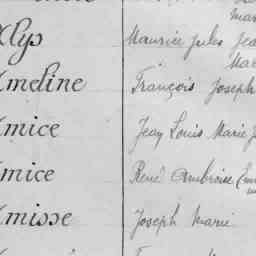 Alys Maurice Jules Jea
Ameline François Joseph
Amice Jean Louis Marie J
Amice René Ambroise
Amisse Joseph Marie